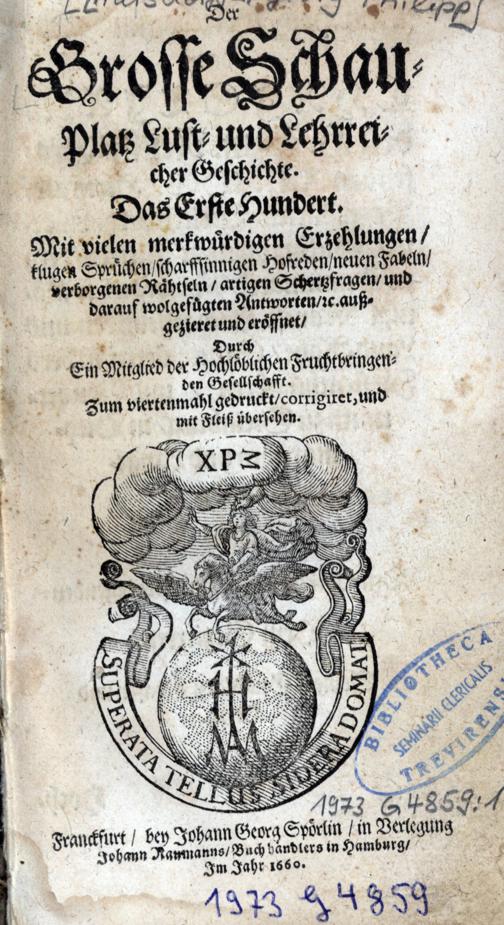 Philipp]
Der
Grosse Schau-
Platz Lust- und Lehrrei-
cher Geschichte.
Das Erste Hundert.
Mit vielen merkwürdigen Erzehlungen/
klugen Sprüchen/scharffsinnigen Hofreden/neuen Fabeln/
verborgenen Rähtseln/ artigen Schertzfragen/ und
darauf wolgefügten Antworten/ꝛc. auß-
gezieret und eröffnet/
Durch
Ein Mitglied der Hochlöblichen Fruchtbringen-
den Gesellschafft.
Zum viertenmahl gedruckt/corrigiret, und
mit Fleiß übersehen.
XPΣ
SUPERATA TELLUS SIDERA DOMAT
BIBLIOTHECA
SEMINARII CLERICALIS
TREVIRENSI
1973 G 4859:1
Franckfurt / bey Johann Georg Spörlin / in Verlegung
Johann Naumanns/Buchhändlers in Hamburg/
Im Jahr 1660.
1973 G 4859